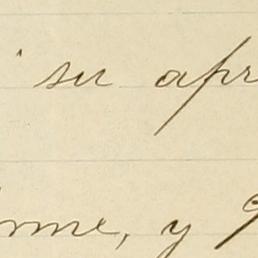 su apr
rme, y